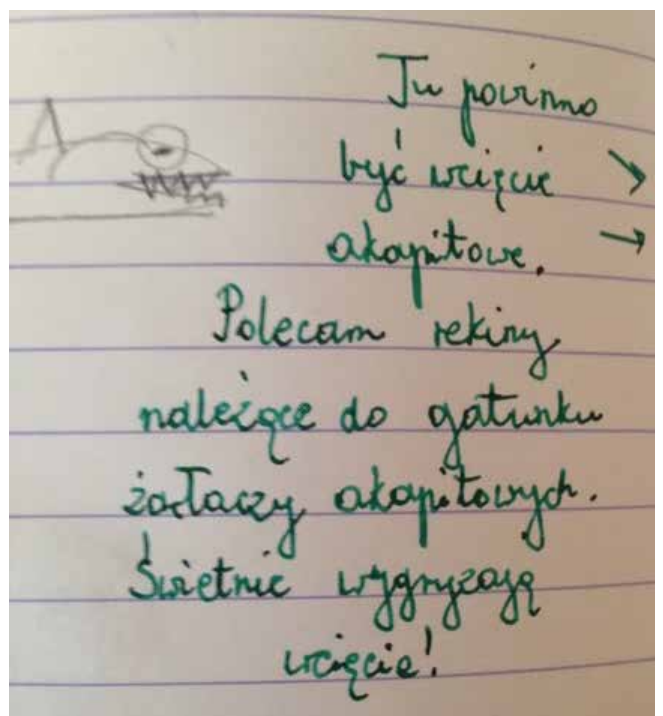 Tu powinno
być wcięcie
akapitowe.
Polecam rekiny
należące do gatunku
żarłaczy akapitowych.
Świetnie wygryzają
wcięcie!